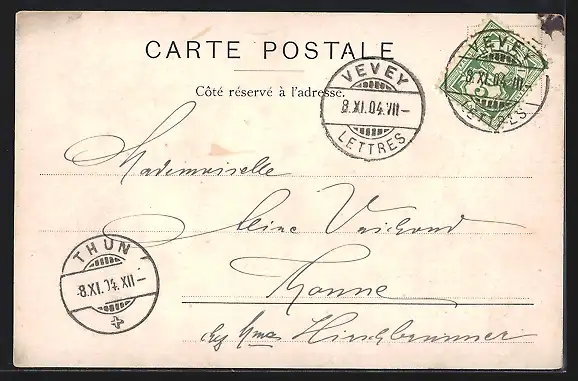 CARTE POSTALE
Côté réservé à l'adresse.
VEVEY
8.XI.04.VII-
LETTRES
VEVEY
8.XI.04.VII-
LETTRES
5
Mademoiselle
Thonne
THUN
8.XI.04.XII-
chez Mme Hirschbrunner